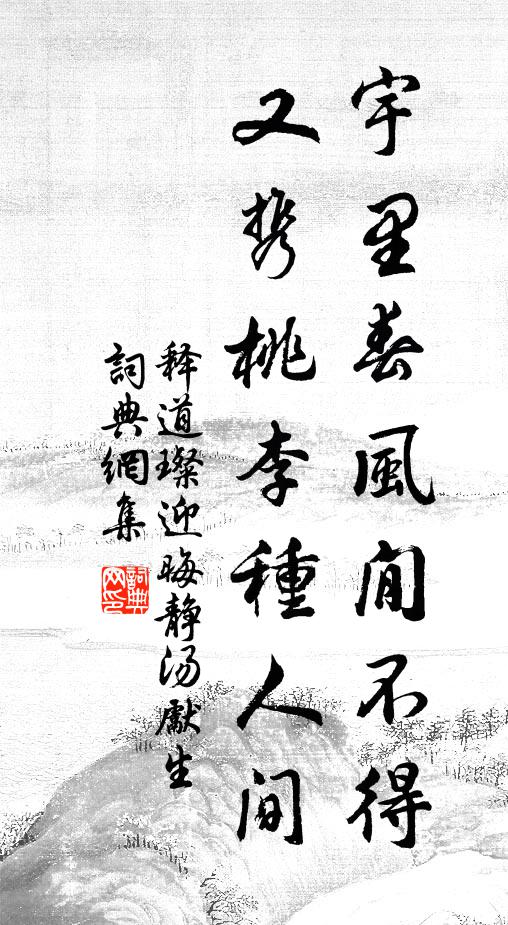 宇里春風閒不得
又携桃李種人間
释道璨迎晦静汤獻生
詞典網集
詞典網印